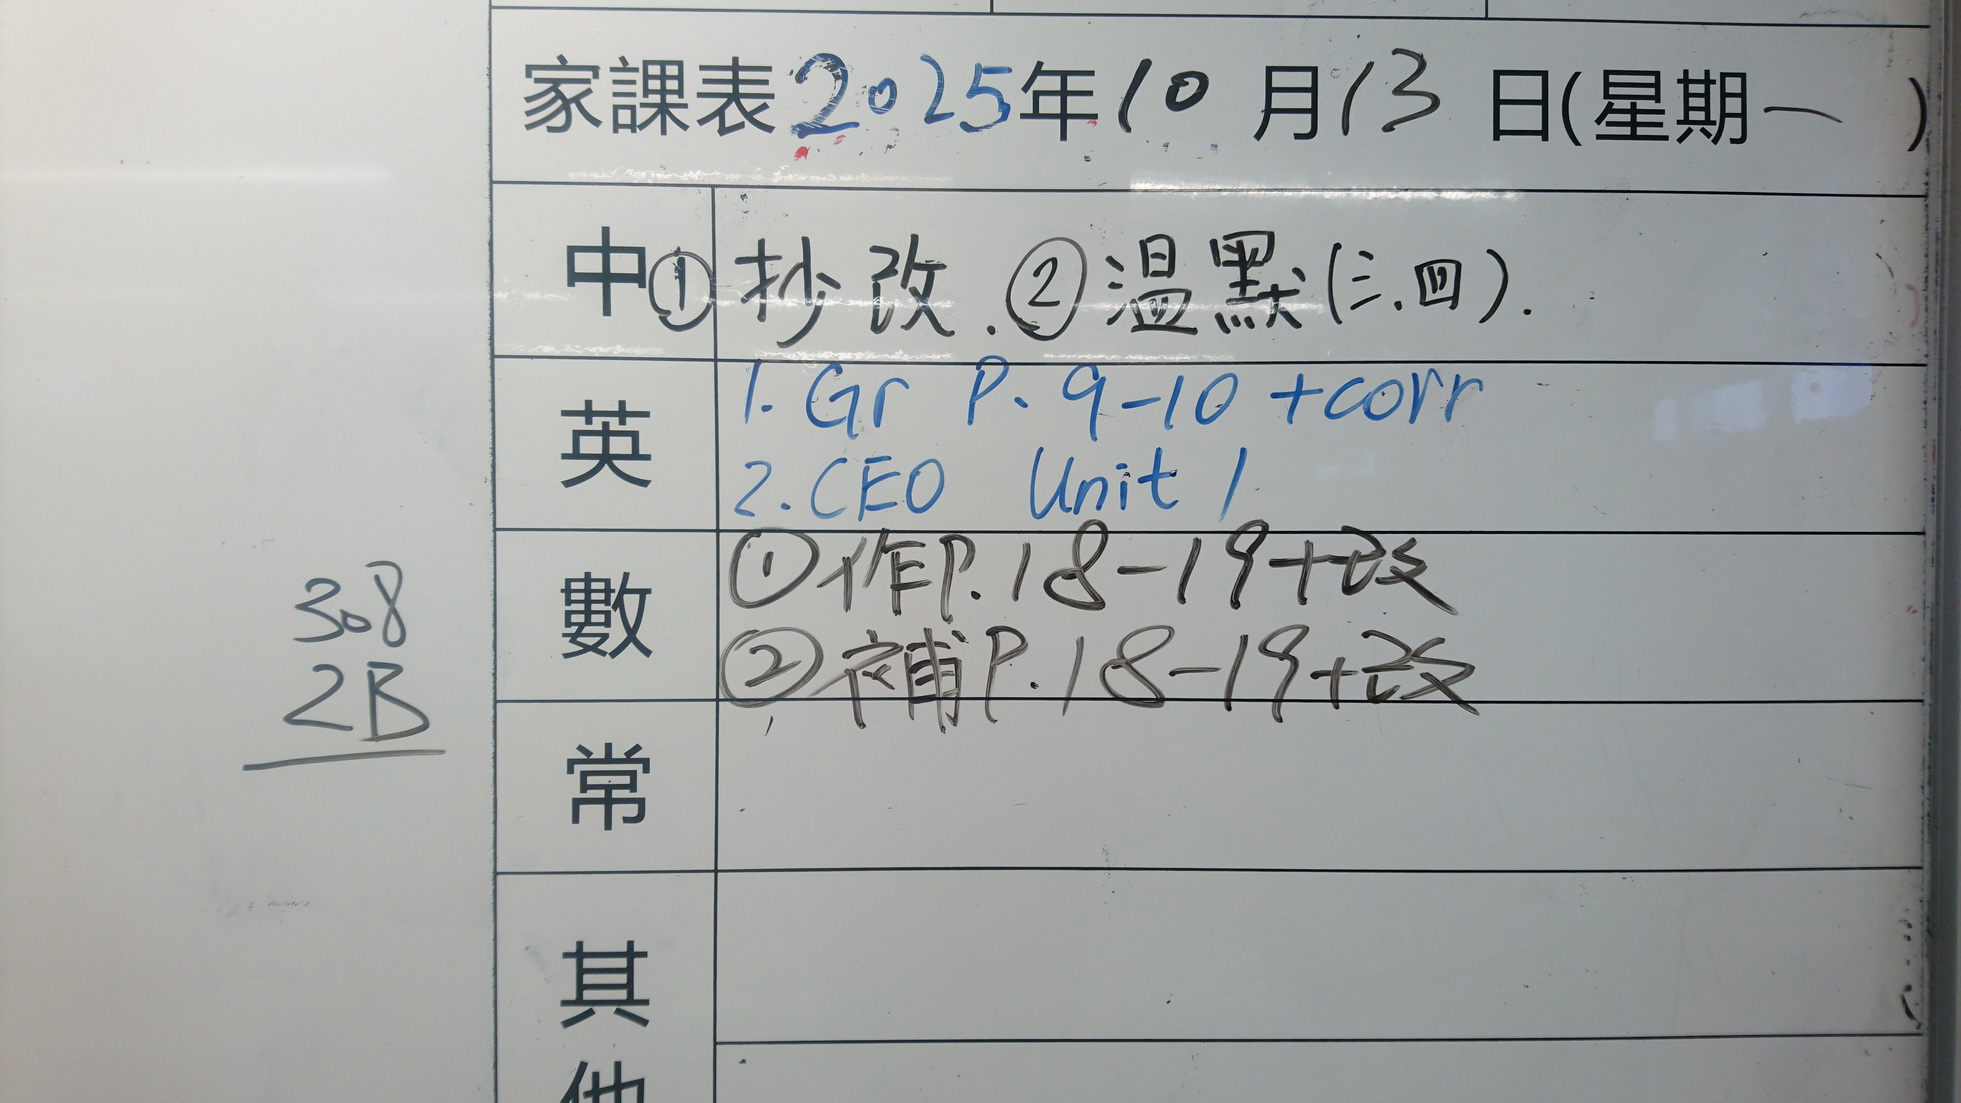 家課表2025年10月13日(星期一)
中 ①抄改.②溫默(三.四).
英 1. Gr P. 9-10 +corr
2. CEO Unit 1
數 ①作P.18-19+改
②補P.18-19+改
308
2B
常
其
他